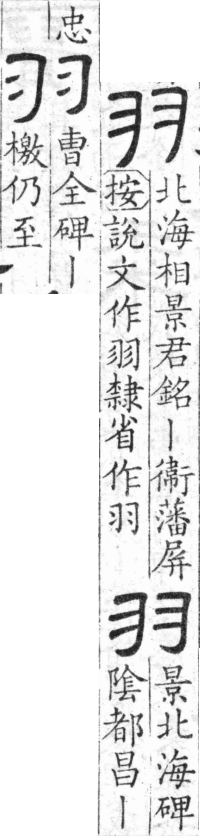 羽
北海相景君銘丨衞藩屏
按說文作羽隸省作羽
羽
景北海碑
陰都昌丨
忠
羽
曹全碑丨
檄仍至